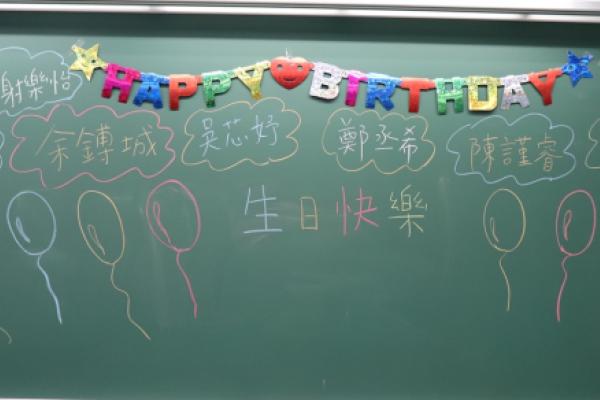 HAPPY BIRTHDAY
謝樂怡
余鎛城
吳芯妤
鄭丞希
陳謹睿
生日快樂